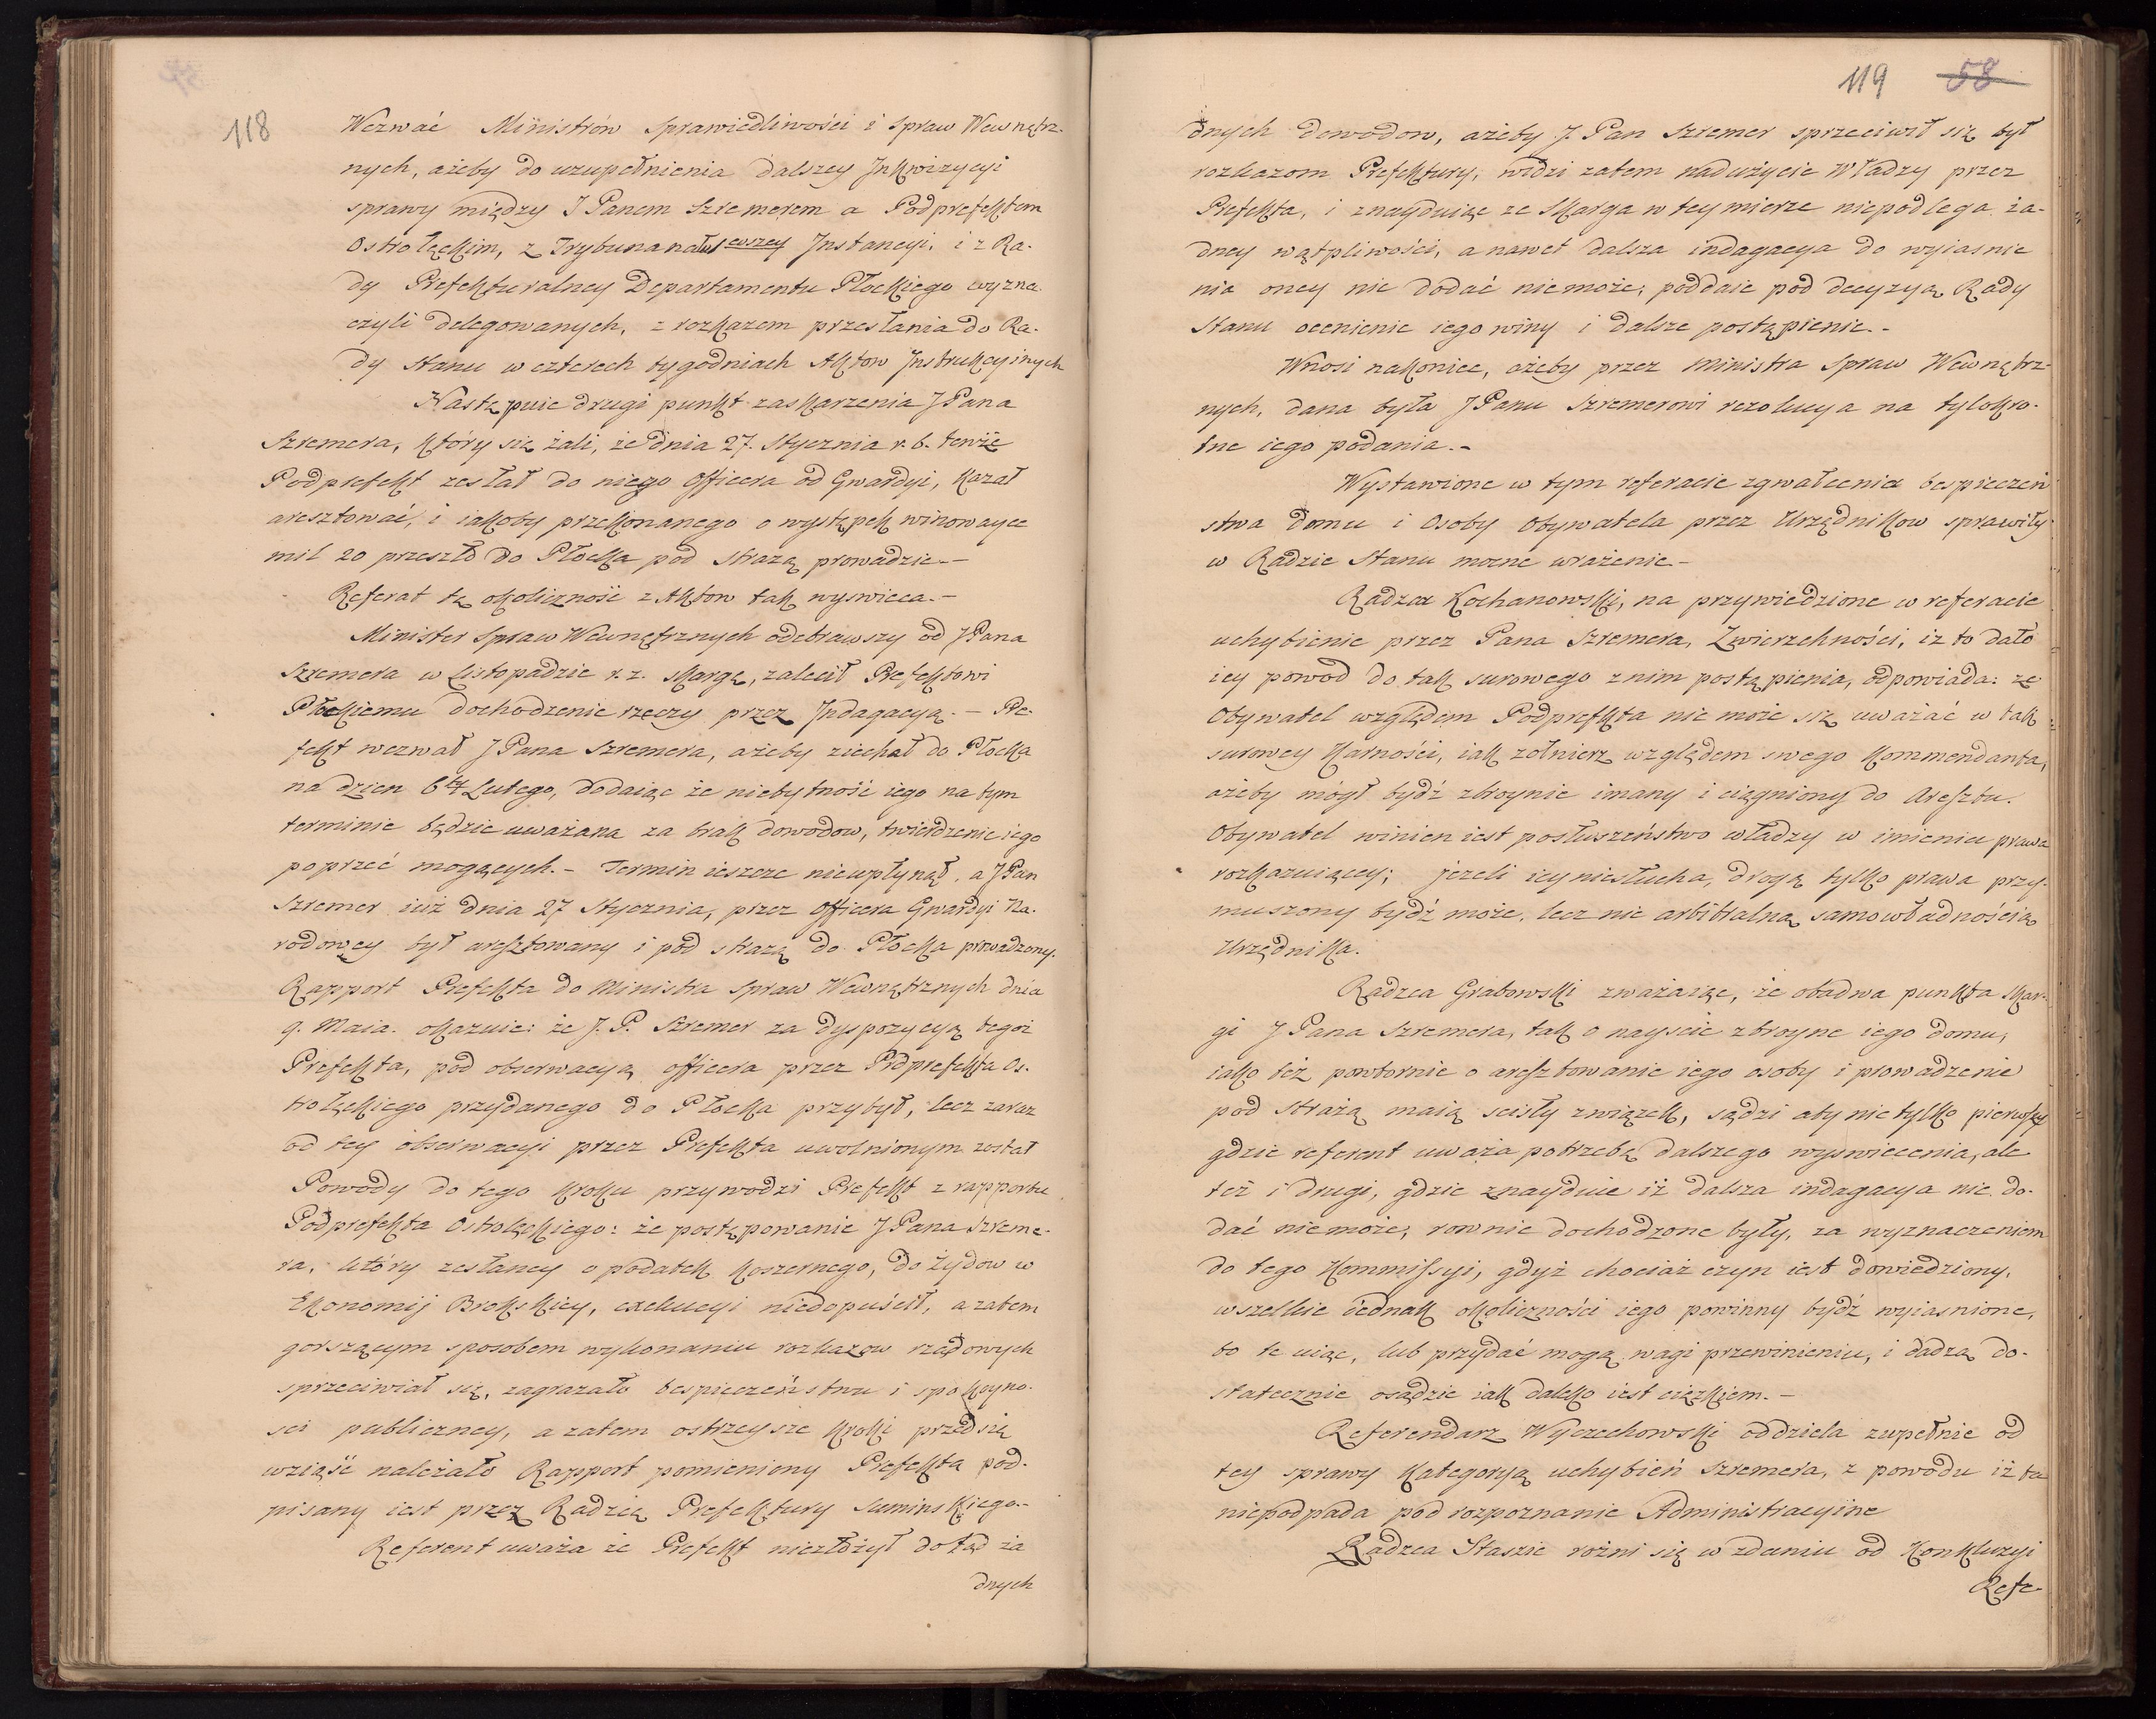 118
Wezwać Ministrów Sprawiedliwości i Spraw Wewnętrz-
nych, ażeby do uzupełnienia dalszey Jnkwizycyi
sprawy między J Panem Szremerem a Podprefektem
Ostrołęckim, z Trybunału 1 wszey Jnstancyi, i z Ra-
dy Prefekturalney Departamentu Płockiego wyzna-
czyli delegowanych, z rozkazem przesłania do Ra-
dy Stanu w czterech tygodniach Aktow Jnstrukcyinych
Następuie drugi punkt zaskarzenia J Pana
Szremera, który się żali, że dnia 27. Stycznia r. b. tenże
Podprefekt zesłał do niego Officera od Gwardyi, kazał
aresztować, i iakoby przekonanego o występek winowayce
mil 20 przeszło do Płocka pod strażą prowadzic.-
Referat tę okoliczność z Aktow tak wyswieca.-
Minister Spraw Wewnętrznych odebrawszy od J Pana
Szremera w Listopadzie r. z. skargę, zalecił Prefektowi
Płockiemu dochodzenie rzeczy przez Jndagacyą.- Pre-
fekt wezwał J Pana Szremera, ażeby ziechał do Płocka
na dzien 6ty Lutego, dodaiąc że niebytność iego na tym
terminie będzie uważana za brak dowodow, twierdzenie iego
poprzeć mogących.- Termin ieszcze nieupłynął, a J Pan
Szremer iuż dnia 27 Stycznia, przez Officera Gwardyi Na-
rodowey był aresztowany i pod strazą do Płocka prowadzony.
Rapport Prefekta do Ministra Spraw Wewnętrznych dnia
9. Maia. okazuie: że J. P. Szremer za dyspozycyą tegoż
Prefekta, pod obserwacyą officera przez Podprefekta Os-
trołęckiego przydanego do Płocka przybył, lecz zaraz
od tey obserwacyi przez Prefekta uwolnionym został
Powody do tego kroku przywodzi Prefekt z rapportu
Podprefekta Ostrołęckiego: że postępowanie J Pana Szreme-
ra, który zesłaney o podatek koszernego, do Żydow w
Ekonomij Brokskiey, exekucyi niedopuścił, a zatem
gorszącym sposobem wykonaniu rozkazow rządowych
sprzeciwiał się, zagrażało bespieczeństwu i spokoyno-
sci publiczney, a zatem ostrzeysze kroki przedsię
wziąść należało Rapport pomieniony Prefekta pod-
pisany iest przez Radzcę Prefektury Suminskiego-
Referent uważa że Prefekt niezłożył dotąd ża
dnych
119 58
dnych dowodow, ażeby J. Pan Szremer sprzeciwił się był
rozkazom Prefektury, widzi zatem nadużycie Władzy przez
Prefekta, i znayduiąc ze skarga w tey mierze niepodlega ża-
dney wątpliwości, a nawet dalsza indagacya do wyiasnie
nia oney nic dodać niemoże, poddaie pod decyzyą Rady
Stanu ocenienie iego winy i dalsze postąpienie.-
Wnosi nakoniec, ażeby przez Ministra Spraw Wewnętrz-
nych, dana była J Panu Szremerowi rezolucya na tylokro-
tne iego podania.-
Wystawione w tym referacie zgwałcenia bespieczeń
stwa domu i Osoby Obywatela przez Urzędnikow sprawiły
w Radzie Stanu mocne wrażenie-
Radzca Kochanowski, na przywiedzione w referacie
uchybienie przez Pana Szremera, Zwierzchności, iz to dało
iey powod do tak surowego z nim postąpienia, odpowiada: ze
Obywatel względem Podprefekta nie może się uważać w tak
surowey karności, iak zołnierz względem swego Kommendanta,
ażeby mógł bydź zbroynie imany i ciągniony do Aresztu.
Obywatel winien iest posłuszeństwo władzy w imieniu prawa
rozkazuiącey; jezeli iey niesłucha, drogą tylko prawa przy-
muszony bydź może, lecz nie arbitralną samowładnością
Urzędnika.
Radzca Grabowski zważaiąc, że obadwa punkta skar-
gi J Pana Szremera, tak o nayscie zbroyne iego domu,
iako też powtornie o aresztowanie iego osoby i prowadzenie
pod strażą maią scisły związek, sądzi aby nie tylko pierwszy
gdzie referent uważa potrzebę dalszego wyswiecenia, ale
też i drugi, gdzie znayduie iż dalsza indagacya nic do-
dać niemoże, rownie dochodzone były, za wyznaczeniem
do tego Kommissyi, gdyż chociaż czyn iest dowiedziony,
wszelkie iednak okoliczności iego powinny bydź wyiasnione,
bo te uiąc, lub przydać mogą wagi przewinieniu, i dadzą do-
statecznie osądzić iak daleko iest ciężkiem.-
Referendarz Wyczechowski oddziela zupełnie od
tey sprawy kategoryą uchybień Szremera, z powodu iż ta
niepodpada pod rozpoznanie Administracyine
Radzca Staszic rożni się w zdaniu od Konkluzyi
Refe-